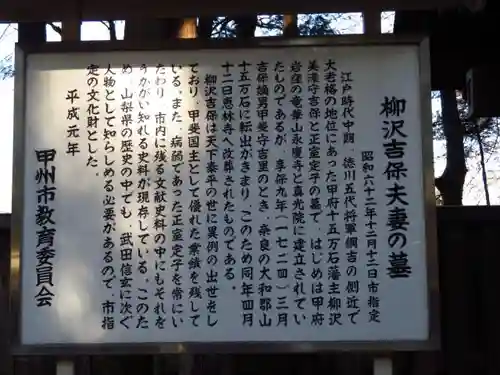 柳沢吉保夫妻の墓
昭和六十二年十二月十二日市指定
江戸時代中期、徳川五代将軍綱吉の側近で
大老格の地位にあった甲府十五万石藩主柳沢
美濃守吉保と正室定子の墓で、はじめは甲府
岩窪の竜華山永慶寺と真光院に建立されてい
たものであるが、享保九年(一七二四)三月
吉保嫡男甲斐守吉里のとき、奈良の大和郡山
十五万石に転出がきまり、このため同年四月
十二日恵林寺へ改葬されたものである。
柳沢吉保は天下泰平の世に異例の出世をし
ており、甲斐国主として優れた業績を残して
いる。また、病弱であった正室定子を常にい
たわり、市内に残る文献史料の中にもそれを
うかがい知れる史料が現存している。このた
め、山梨県の歴史の中でも、武田信玄に次ぐ
人物として知らしめる必要があるので、市指
定の文化財とした。
平成元年
甲州市教育委員会